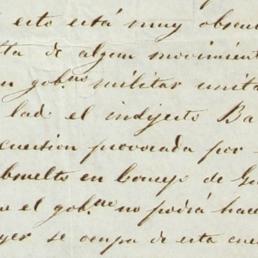 esto está muy obscu
ta de algun movimient
gob.no militar unita
lad el indijesto Ba
cuestion provocada por
bsuelto en Consejo de Gu
e el gob.no no podrá hace
yer se ocupa de esta cue